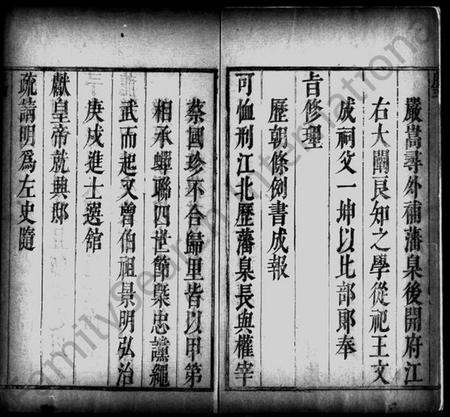 嚴嵩尋外補藩臬後開府江
右大闡良知之學從祀王文
成祠父一坤以比部郎奉
旨修理
歷朝條例書成報
可恤刑江北歷藩臬長與權宰
蔡國珍不合歸里皆以甲第
相承蟬聯四世節槩忠讜繩
武而起又曾伯祖景明弘治
庚戌進士選館
獻皇帝就興邸
疏請明為左史隨
FamilySearch International